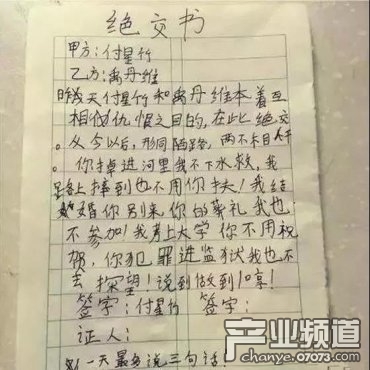 绝交书
甲方:付星竹
乙方:禹丹维
昨天付星竹和禹丹维本着互
相仇恨之目的,在此绝交
。从今以后,形同陌路,两不相干
。你掉进河里我不下水救,我
路上摔到也不用你扶!我结
婚你别来你的葬礼我也
不参加!我考上大学你不用祝
贺,你犯罪进监狱我也不
去探望!说到做到!哼!
签字:付星竹 签字:
证人:
一天最多说三句话!
产业频道
chanye.07073.com